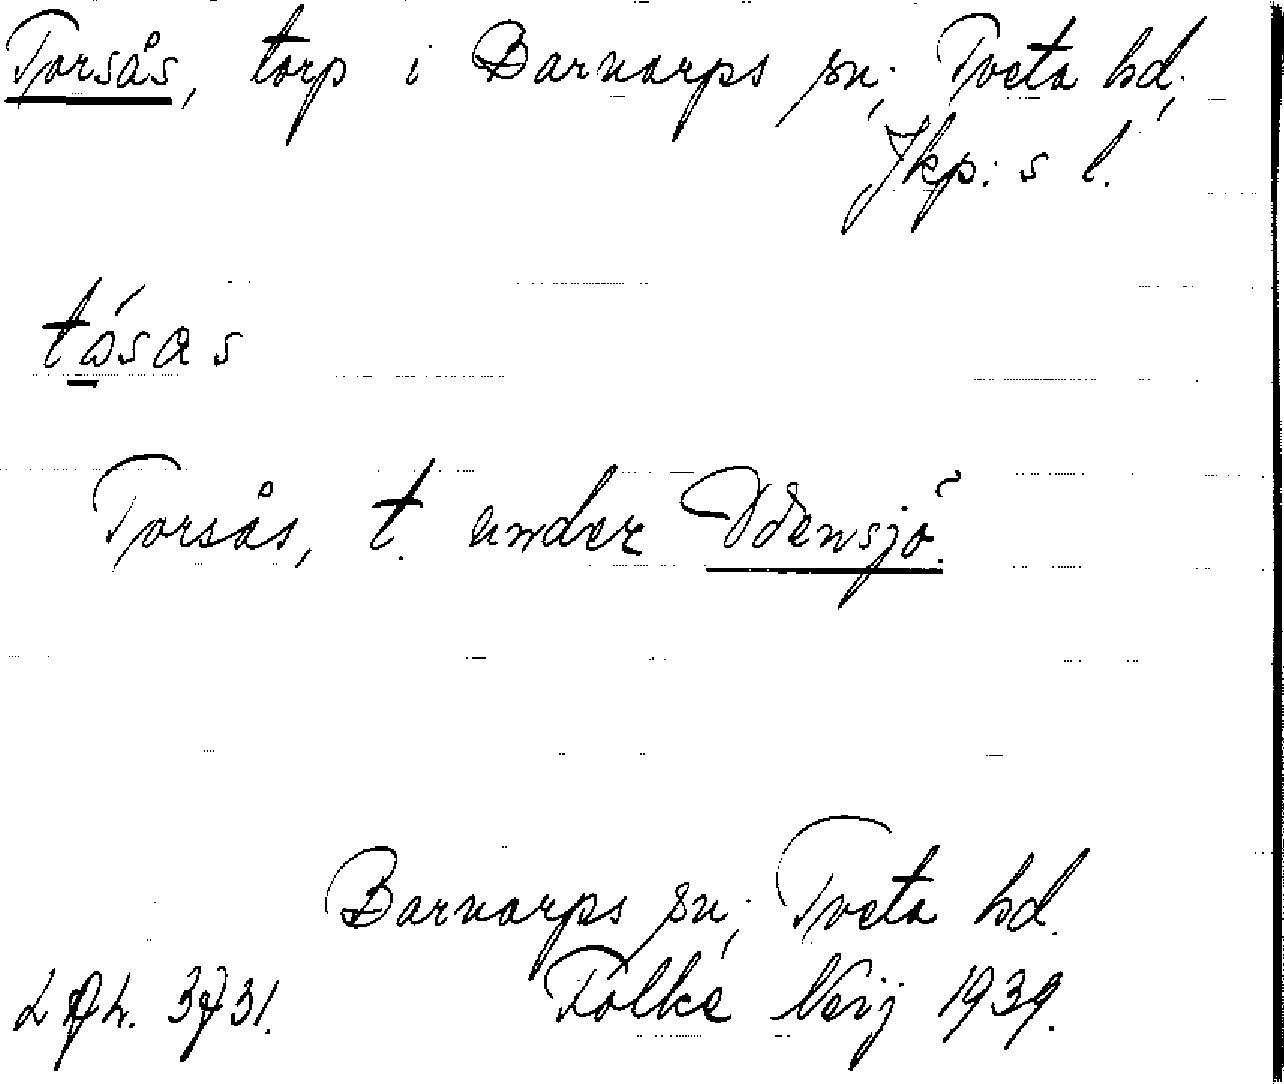 Torsås, torp i Barnarps sn; Tveta hd;
Jkp:s l.
tósas
Torsås, t. under Odensjö.
Barnarps sn; Tveta hd.
Folke Neij 1939.